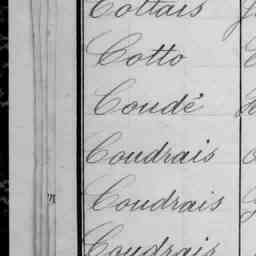 Cottais
Cotto
Coudé
Coudrais
Coudrais
Coudrais